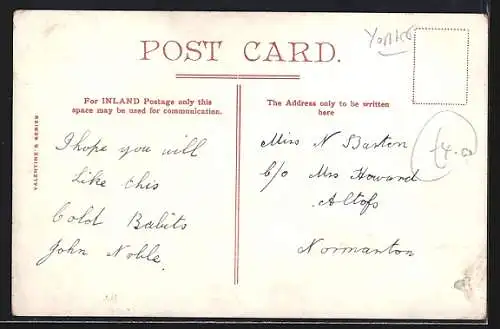 Yorks
POST CARD.
For INLAND Postage only this
space may be used for communication.
The Address only to be written
here
VALENTINE'S SERIES
I hope you will
Like this
Cold Babits
John Noble
Miss N Barton
C/o Mrs Howard
Altofs
Normanton
£4.00